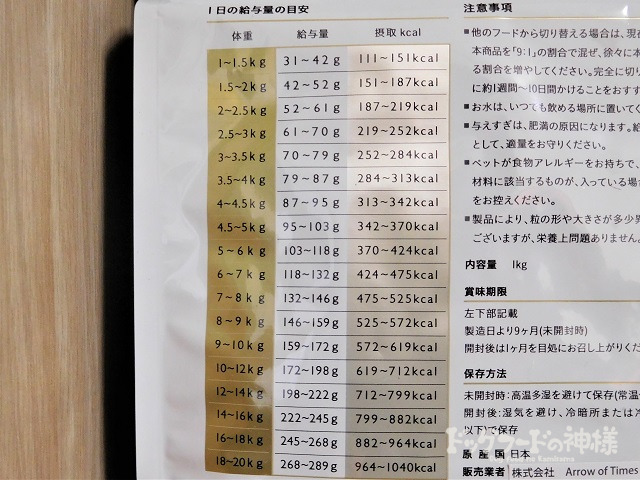 1日の給与量の目安
体重 給与量 摂取kcal
1~1.5kg 31~42g 111~151kcal
1.5~2kg 42~52g 151~187kcal
2~2.5kg 52~61g 187~219kcal
2.5~3kg 61~70g 219~252kcal
3~3.5kg 70~79g 252~284kcal
3.5~4kg 79~87g 284~313kcal
4~4.5kg 87~95g 313~342kcal
4.5~5kg 95~103g 342~370kcal
5~6kg 103~118g 370~424kcal
6~7kg 118~132g 424~475kcal
7~8kg 132~146g 475~525kcal
8~9kg 146~159g 525~572kcal
9~10kg 159~172g 572~619kcal
10~12kg 172~198g 619~712kcal
12~14kg 198~222g 712~799kcal
14~16kg 222~245g 799~882kcal
16~18kg 245~268g 882~964kcal
18~20kg 268~289g 964~1040kcal
注意事項
■他のフードから切り替える場合は、現在
本商品を「9:1」の割合で混ぜ、徐々に本
る割合を増やしてください。完全に切り
に約1週間~10日間かけることをおすす
■お水は、いつでも飲める場所に置いてく
■与えすぎは、肥満の原因になります。給
として、適量をお守りください。
■ペットが食物アレルギーをお持ちで、
材料に該当するものが、入っている場合
をお控えください。
■製品により、粒の形や大きさが多少異
ございますが、栄養上問題ありません。
内容量 1kg
賞味期限
左下部記載
製造日より9ヶ月(未開封時)
開封後は1ヶ月を目処にお召し上がりくだ
保存方法
未開封時:高温多湿を避けて保存(常温
開封後:湿気を避け、冷暗所または冷
以下)で保存
原産国 日本
販売業者 株式会社 Arrow of Times
ドッグフードの神様